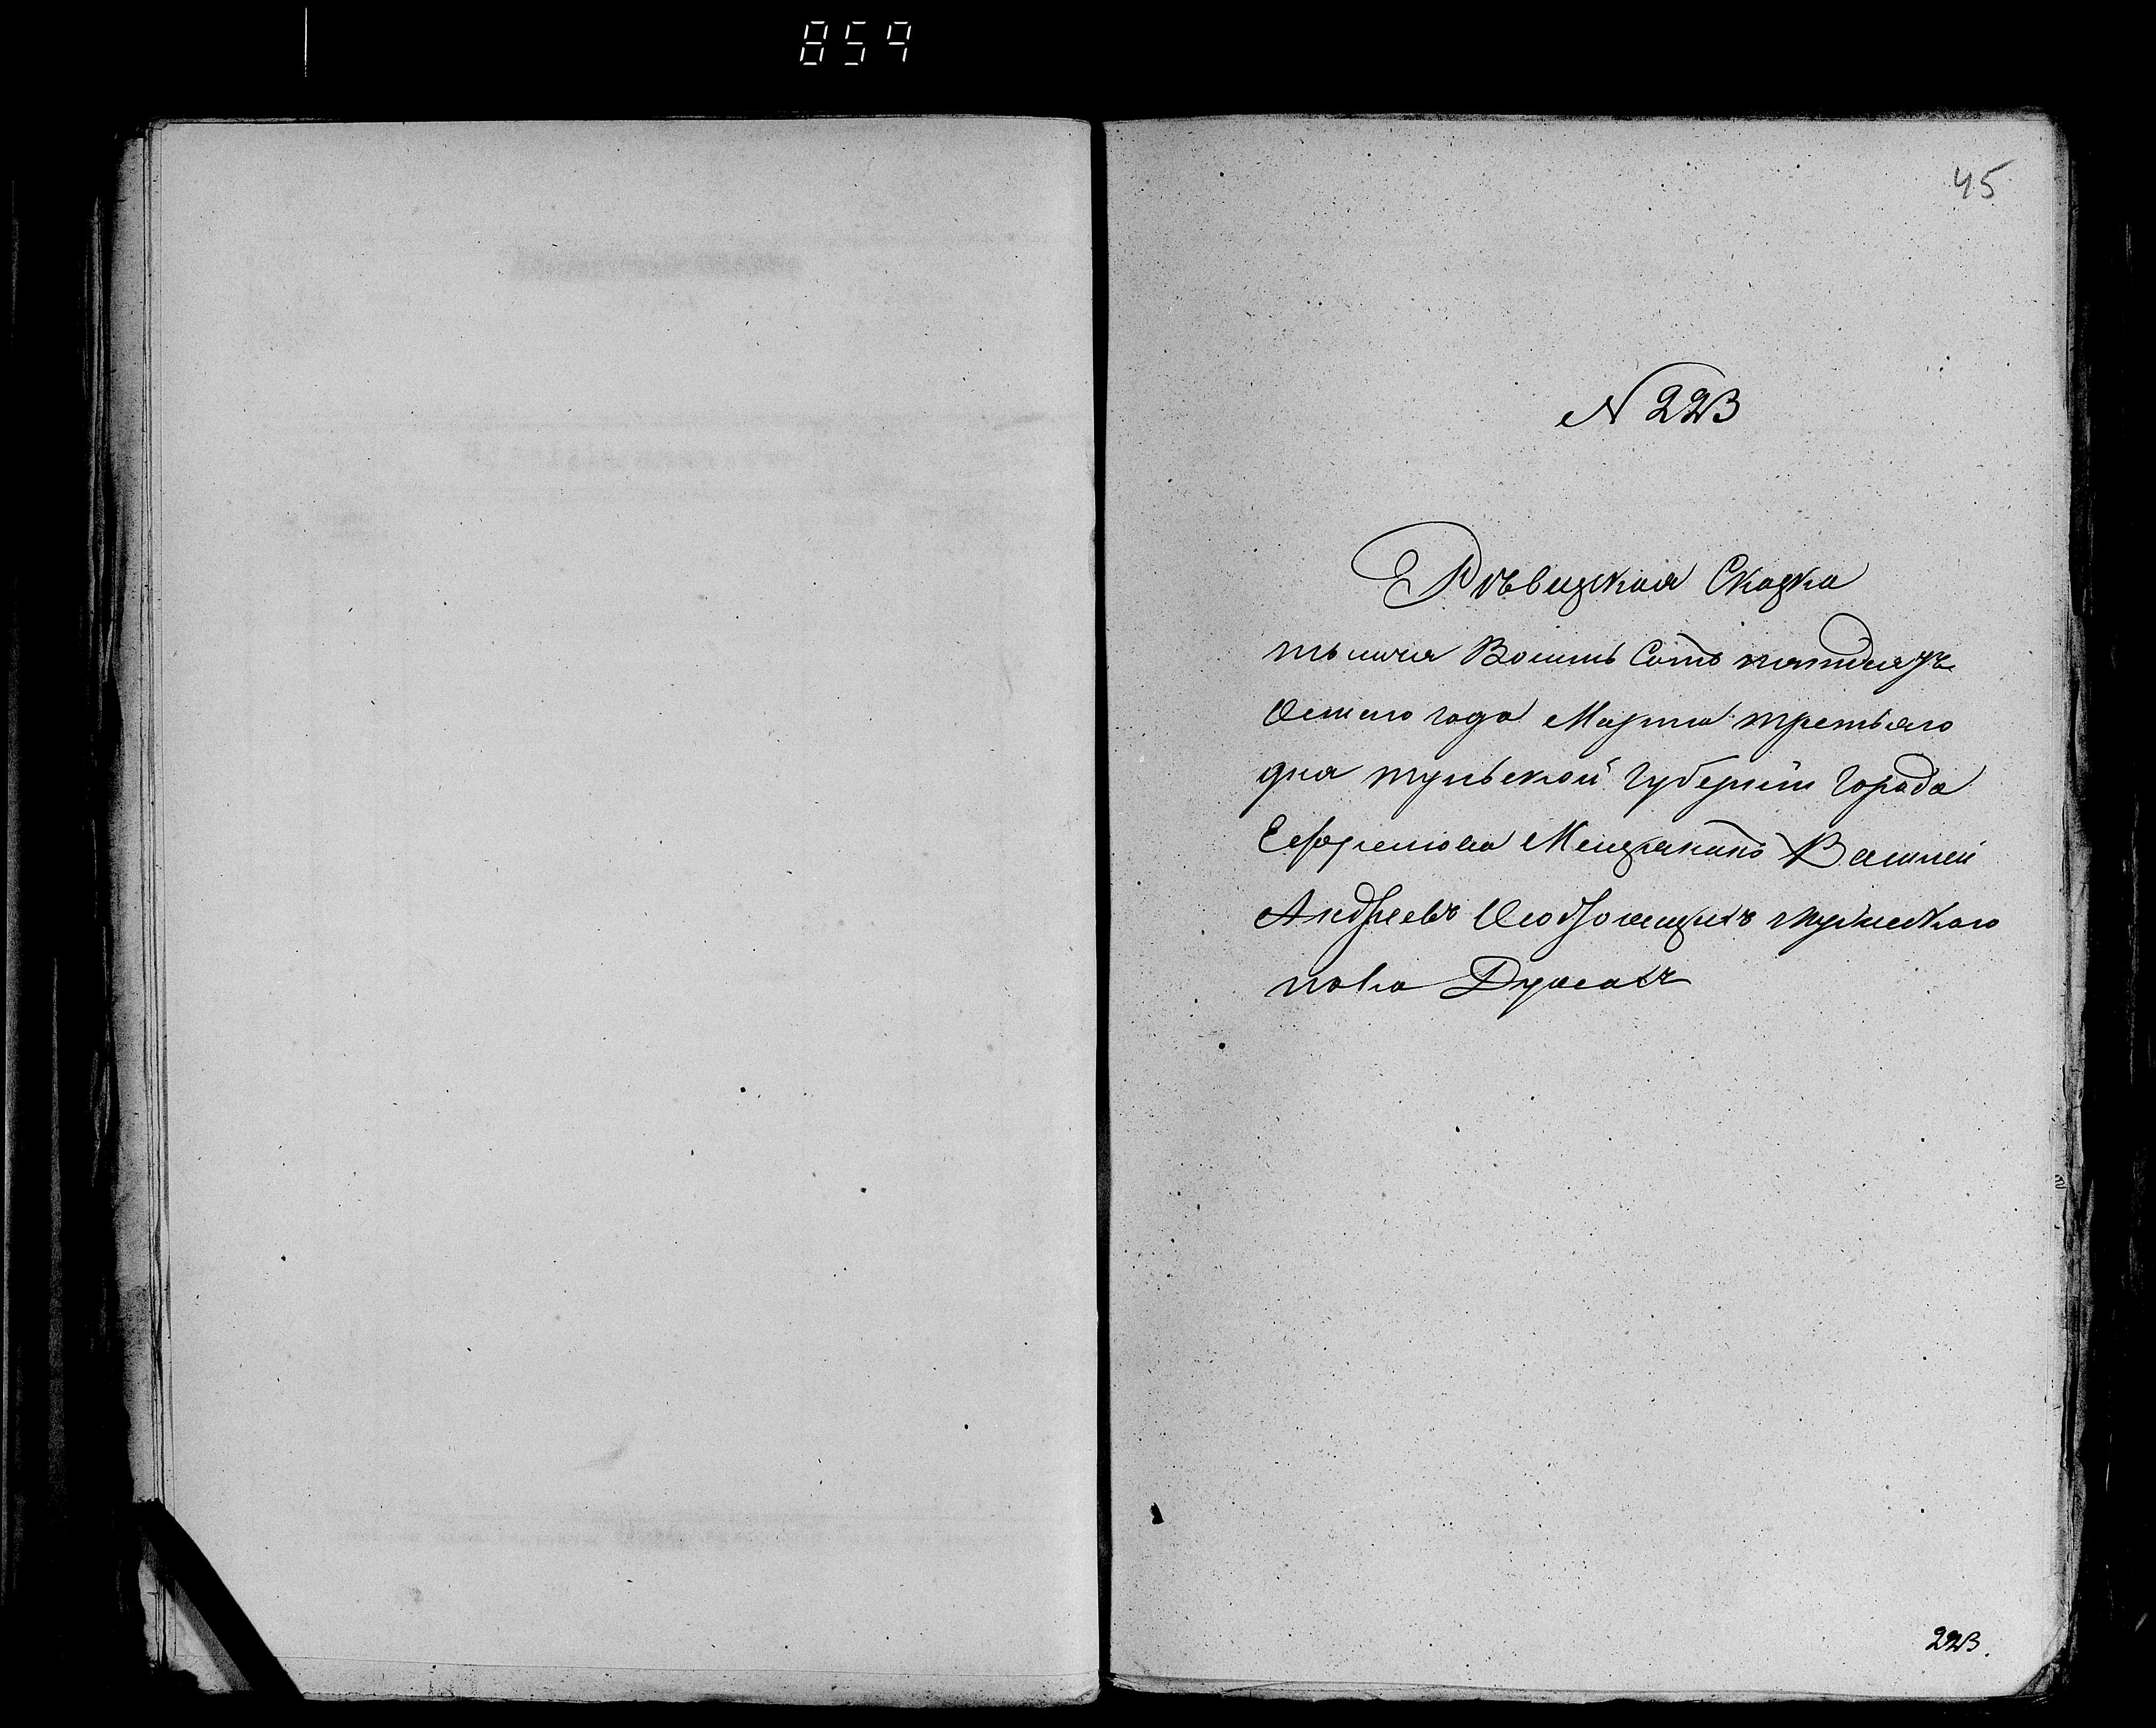 859
45
N 223
Ревизская Сказка
тысяча Восемь Сотъ пятидесятъ
Осмаго года Марта третьяго
дня тульской Губерніи Города
Ефремова Мещанинъ Василій
Андреевъ мужескаго
пола Душахъ
223.